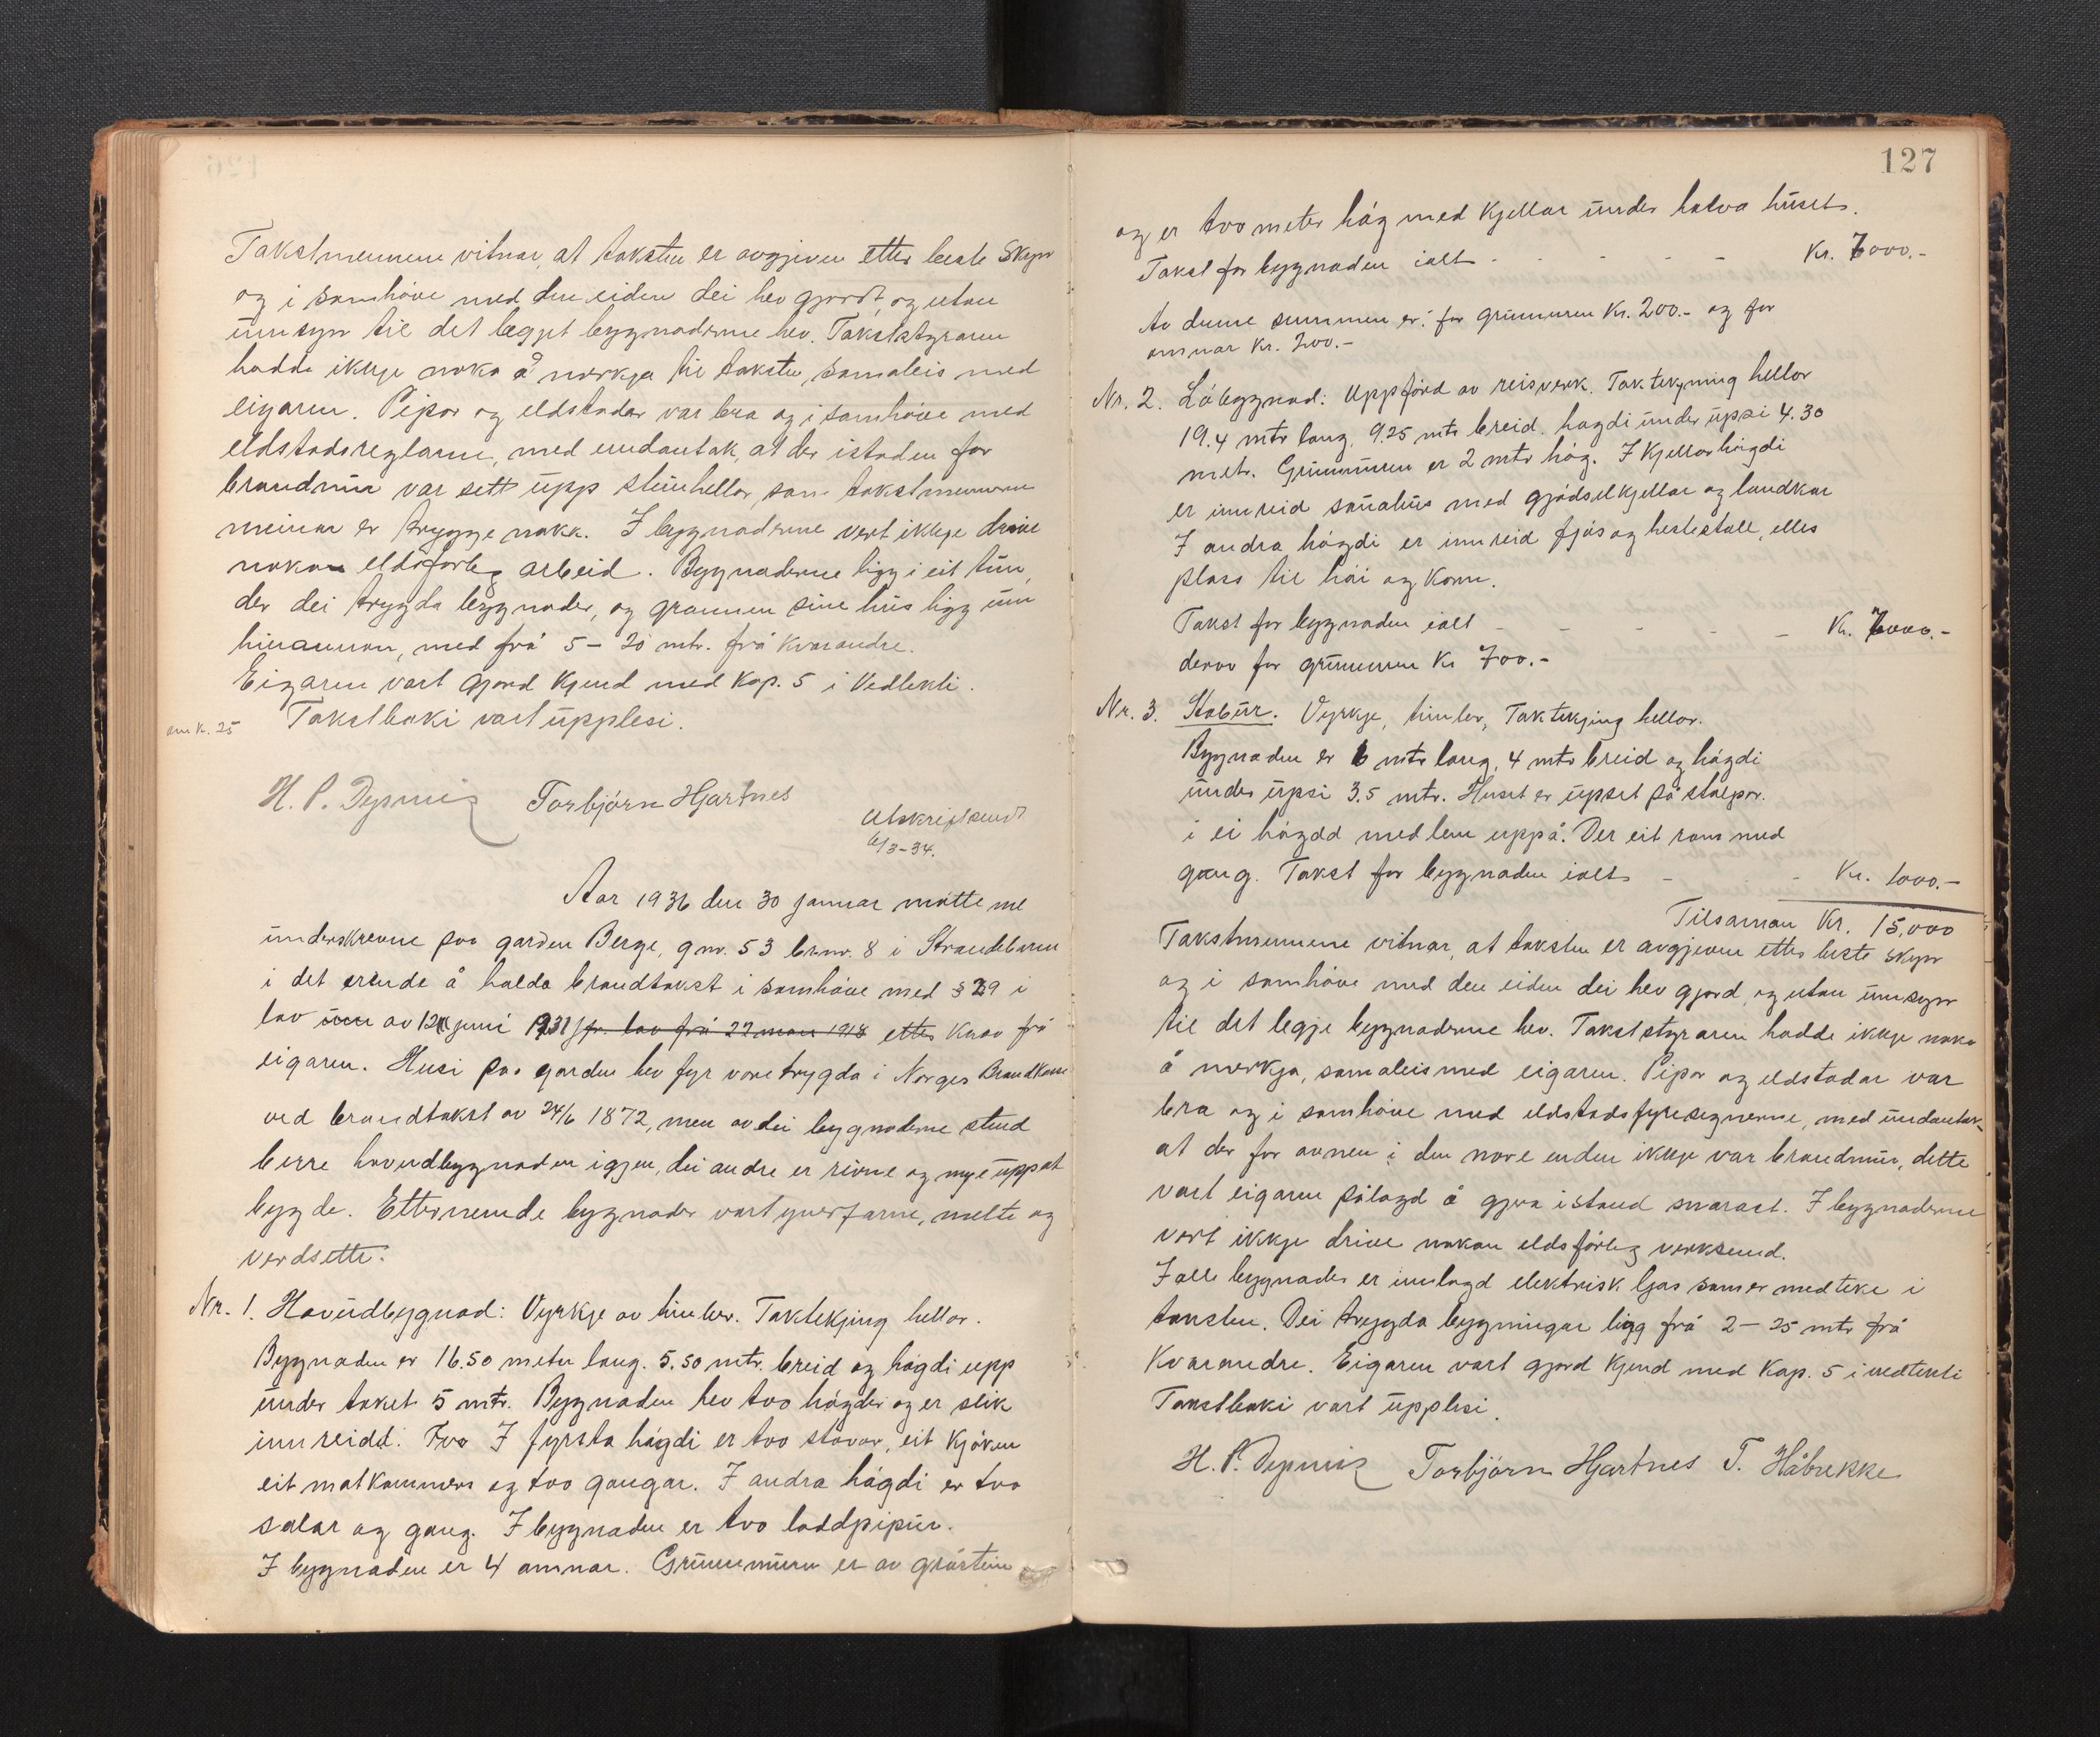 Takstmennene vitnar, at taksten er avgjeven etter beste Skyn
og i samhöve med den eiden dei hev gjordt, og utan
umsyn til det legjet bygnaderne hev. Takststyraren
hadde ikkje noko å merkja til taksten, samaleis med
eigaren. Pipor og eldstader var bra og i samhöve med
eldstadsreglarne, med undantak, at der istaden for
brandmur var sett upp steinhellor, som takstmennene
meinar er trygge nokk. I bygnaderne vert ikkje drive
nokon eldsfarleg arbeid. Bygnaderne ligg i eit tun,
der dei trygda bygnader, og grannen sine hus ligg um
hinannan, med frå 5 – 20 mtr. frå kvarandre.
Eigaren vart gjord kjend med Kap. 5 i Vedtekti.
Takstboki vart upplesi.
am k. 25
H. P. Torbjörn Hjartnes
Utskrift sendt
6/3-34.
Aar 1936 den 30 januar mötte me
underskrevne paa garden Berge, gnr. 53 brnr. 8 i Strandebarm
i det erende å halda brandtakst i samhöve med § 29 i
lov um av 12 juni 1931 jfr. lov frå 22 mars 1918 etter krav frå
eigaren. Husi paa garden hev fyr vore trygda i Norges Brandkasse
ved brandtakst av 24/6 1872, men av dei bygnaderne stend
berre hovudbygnaden igjen, dei andre er rivne og mye uppat
bygde. Etternemde bygnader vart yverfarne, melte og
verdsette:
Nr. 1. Hovudbygnad: Vyrkje av timber. Taktekjing hellor.
Bygnaden er 16.50 meter lang. 5.50 mtr. breid og högdi upp
under taket 5 mtr. Bygnaden hev tvo högder og er slik
innreidd. Tvo I fyrsta högdi er tvo stovor, eit kjöken
eit matkammers og tvo gangar. I andra högdi er tvo
salar og gang. I bygnaden er tvo loddpipur.
I bygnaden er 4 omnar. Grunnmuren er av gråstein
127
og er tvo meter hög med Kjellar under halva huset.
Takst for bygnaden ialt - - - - Kr. 7000.-
Av denne summen er: for grunnmuren Kr. 200.- og for
omnar Kr. 200.-
Nr. 2. Löbygnad: Uppförd av reisverk. Taktekjning hellor
19.4 mtr lang, 9.25 mtr breid. hogdi under upsi 4.30
metr. Grunnmuren er 2 mtr hög. I Kjellarhögdi
er innreid sauahus med gjödselkjellar og landkar
I andra högdi er innreid fjös og hestestall, elles
plass til höi og Korn.
Takst for bygnaden ialt - - - - - Kr. 7000.-
derav for grunnmuren Kr 700.-
Nr. 3. Stabur. Vyrkje, timber, Taktekjing hellor.
Bygnaden er 6 mtr lang, 4 mtr breid og högdi
under upsi 3.5 mtr. Huset er upset på stolpar.
i ei högdd med lem uppå. Der eit rom med
gang. Takst for bygnaden ialt - - Kr. 1000.-
Tilsaman Kr. 15,000
Takstmennene vitnar, at taksten er avgjeven etter beste skyn
og i samhöve med den eiden dei hev gjord, og utan umsyn
til det legje bygnaderne hev. Takststyraren hadde ikkje noko
å merkja, samaleis med eigaren. Pipor og eldstadar var
bra og i samhöve med eldstadsfyresegnerne, med undantak
at der for omnen i den nore enden ikkje var brandmur, dette
vart eigaren pålagd å gjera istand snarast. I bygnaderne
vert ikkje drive nokon eldsfårleg verksemd.
I alle bygnader er innlagd elektrisk ljos som er medteke i
taksten. Dei trygda bygningar ligg frå 2 – 25 mtr frå
Kvarandre. Eigaren vart gjord kjend med Kap. 5 i vedtekti
Takstboki vart upplesi.
H. P. Torbjörn Hjartnes T. Håbrekke